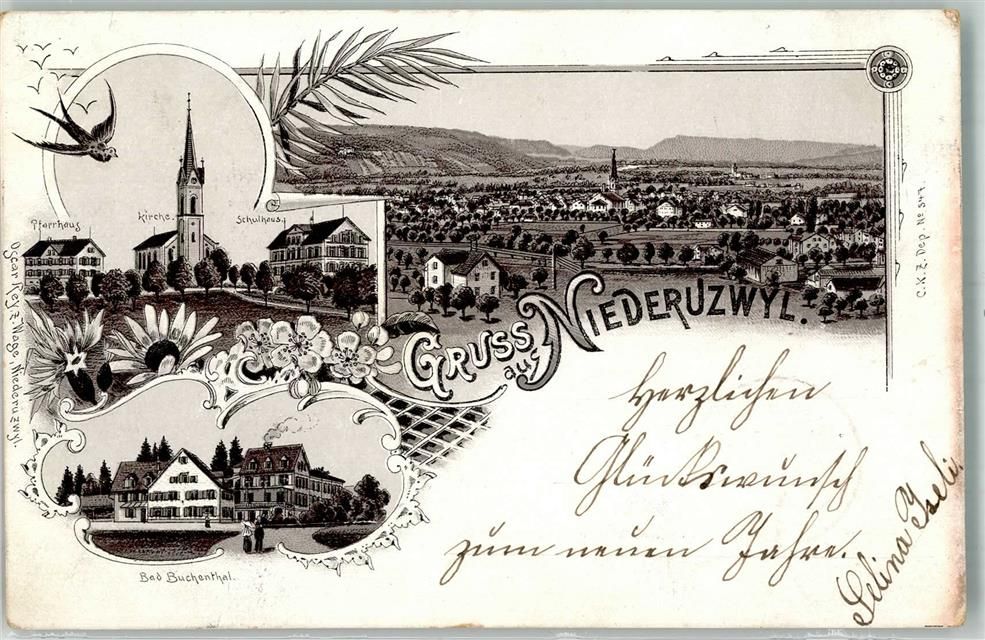 Pfarrhaus
Kirche.
Schulhaus.
GRUSS aus NIEDERUZWYL.
Bad Buchenthal.
Oscar Key z. Wage, Niederuzwyl.
C. K. Z. Dep. No 347.
Herzlichen
Glückswunsch
zum neuen Jahre.
Selina Iseli.